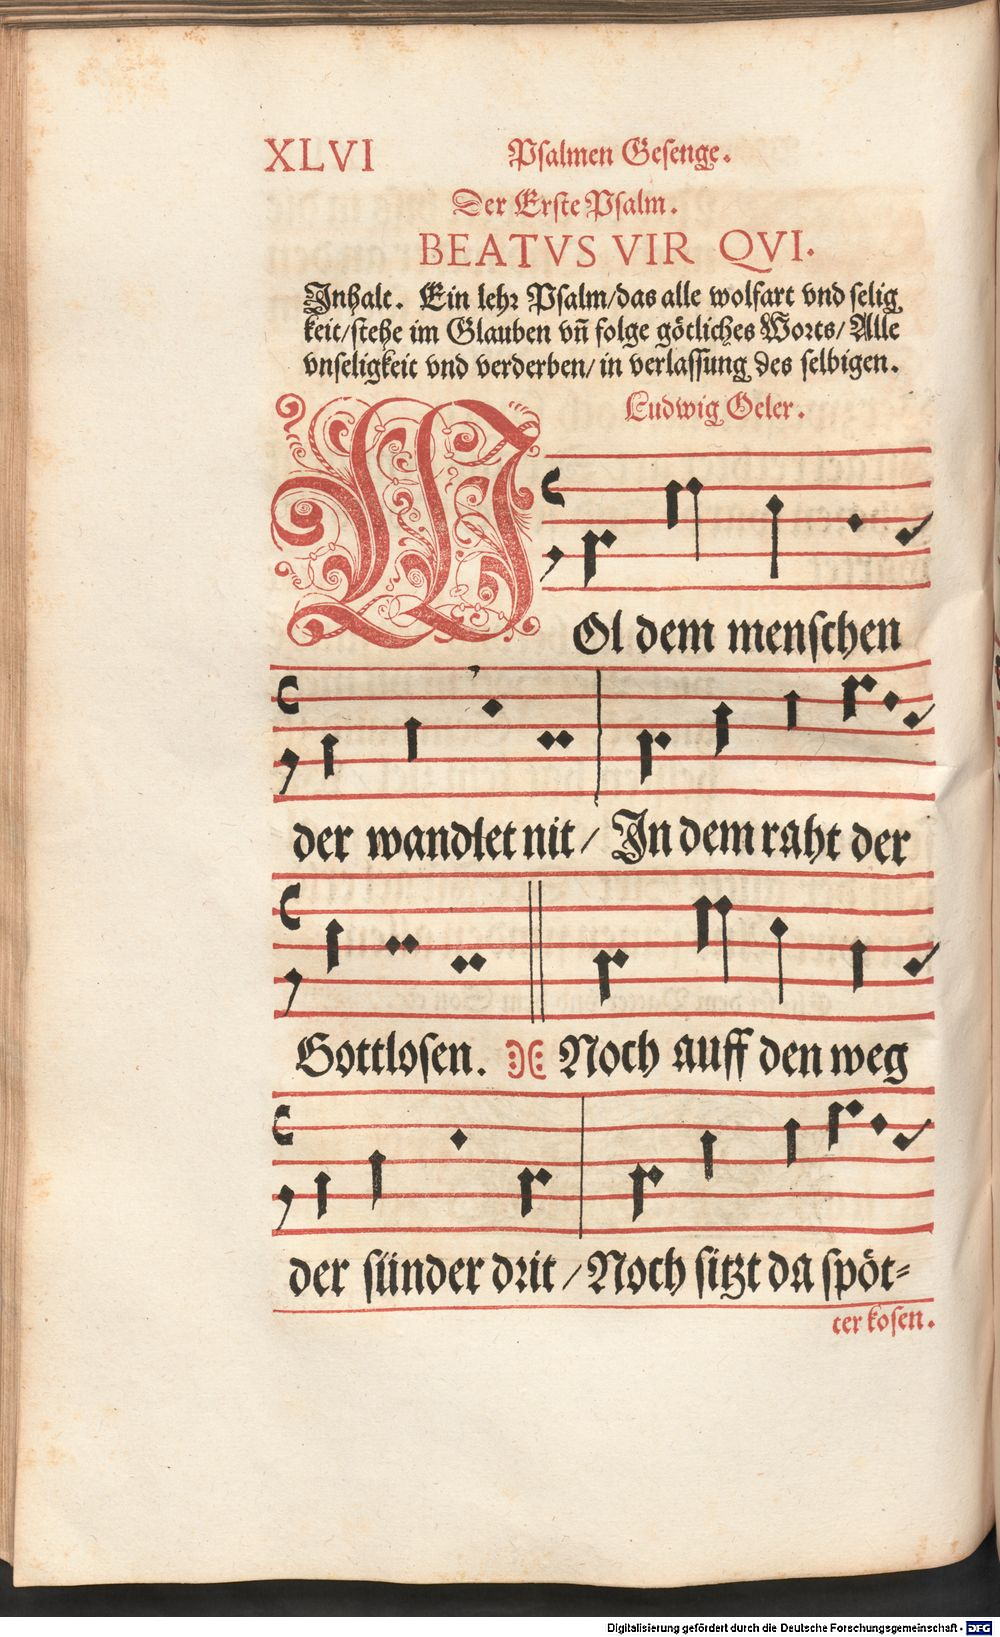 XLVI Psalmen Gesenge.
Der Erste Psalm.
BEATVS VIR QVI.
Inhalt. Ein lehr Psalm/das alle wolfart vnd selig
keit/stehe im Glauben vñ folge götliches Worts/Alle
vnseligkeit vnd verderben/in verlassung des selbigen.
Ludwig Oeler.
WOl dem menschen
der wandlet nit/ In dem raht der
Gottlosen. Noch auff den weg
der sünder drit/Noch sitzt da spöt⸗
ter kosen.
Digitalisierung gefördert durch die Deutsche Forschungsgemeinschaft - DFG